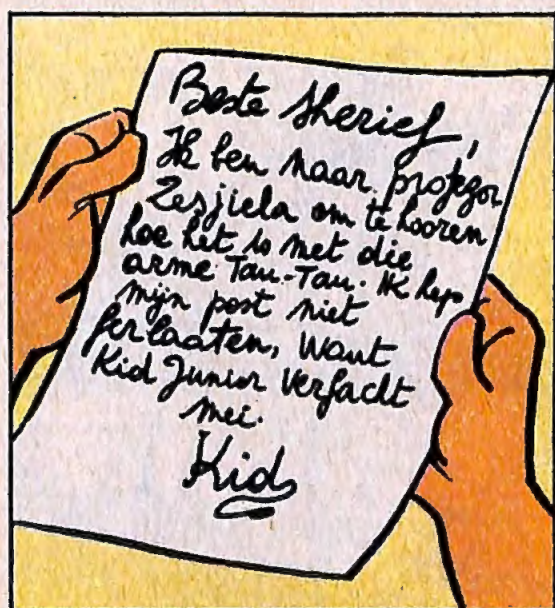 Beste Sherief,
Ik ben naar profezor
Zesjieln om te hooren
hoe het is met die
arme Tau-Tau. Ik hep
mijn post niet
ferlaaten, want
Kid Junior verfacht
mei.
Kid